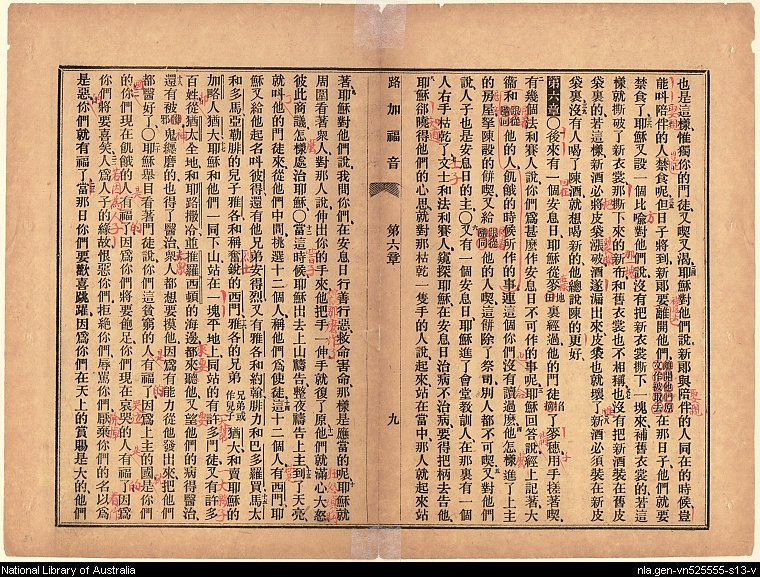 也是這樣惟獨你的門徒又喫又渴耶穌對他們說新郞與陪伴的人同在的時候豈
能呌陪伴的人禁食呢但日子將到新郞要離開他們離開他們原文作被取去在那日子他們就要
禁食了耶穌又說一個比喻對他們說沒有把新衣裳撕下一塊來補舊衣裳的若這
樣就撕破了新衣裳那撕下來的新布和舊衣裳也不相稱也沒有把新酒裝在舊皮
袋裏的若這樣新酒必將皮袋漲破酒遂漏出來皮袋也就壞了新酒必須裝在新皮
袋裏沒有人喝了陳酒就想喝新的他總說陳的更好
第六章○後來有一個安息日耶穌從麥地田裏經過他的門徒掐了麥穗用手搓著喫
有幾個法利賽人說你們爲甚麽作安息日不可作的事呢耶穌回答說經上記著大
衞和跟從隨同他的人飢餓的時候所作的事連這個你們沒有讀過麽他怎樣進了上主
的房屋拏陳設的餅喫又給跟從隨同他的人喫這餅除了祭司別人都不可喫又對他們
說人子也是安息日的主○又有一個安息日耶穌進了會堂敎訓人在那裏有一個
人右手枯乾了文士和法利賽人窺探耶穌在安息日治病不治病要得把柄去告他
耶穌卻曉得他們的心思就對那枯乾一隻手的人說起來站在當中那人就起來站
路加福音 第六章 九
著耶穌對他們說我問你們在安息日行善行惡救命害命那樣是應當的呢耶穌就
周圍看著衆人對那人說伸出你的手來他把手一伸手就復了原他們就滿心大怒
彼此商議怎樣處治耶穌○當這時候耶穌出去上山禱告整夜禱告上主到了天亮
就呌他的門徒來從他們中間挑選十二個人稱他們爲使徒這十二個人有西門耶
穌又給他起名呌彼得還有他兄弟安得烈又有雅各和約翰腓力和巴多羅買馬太
和多馬亞勒腓的兒子雅各和稱奮銳的西門雅各的兄弟兄弟或作兒子猶大和賣耶穌的
加畧人猶大耶穌和他們一同下山站在一塊平地上同站的有許多門徒又有許多
百姓從猶太全地和耶路撒冷並推羅西頓的海邊都來聽他又望他們的病得醫治
還有被邪鬼纒磨的也得了醫治衆人都想要摸他因爲有能力從他發出來把他們
都醫好了○耶穌舉目看著門徒說你們這貧窮的人有福了因爲上主的國是你們
的你們現在飢餓的人有福了因爲你們將要飽足你們現在哀哭的人有福了因爲
你們將要喜笑人爲人子的緣故恨惡你們拒絶你們辱罵你們厭棄你們的名以爲
是惡你們就有福了當那日你們要歡喜跳躍因爲你們在天上的賞賜是大的他們
National Library of Australia
nla.gen-vn525555-s13-v